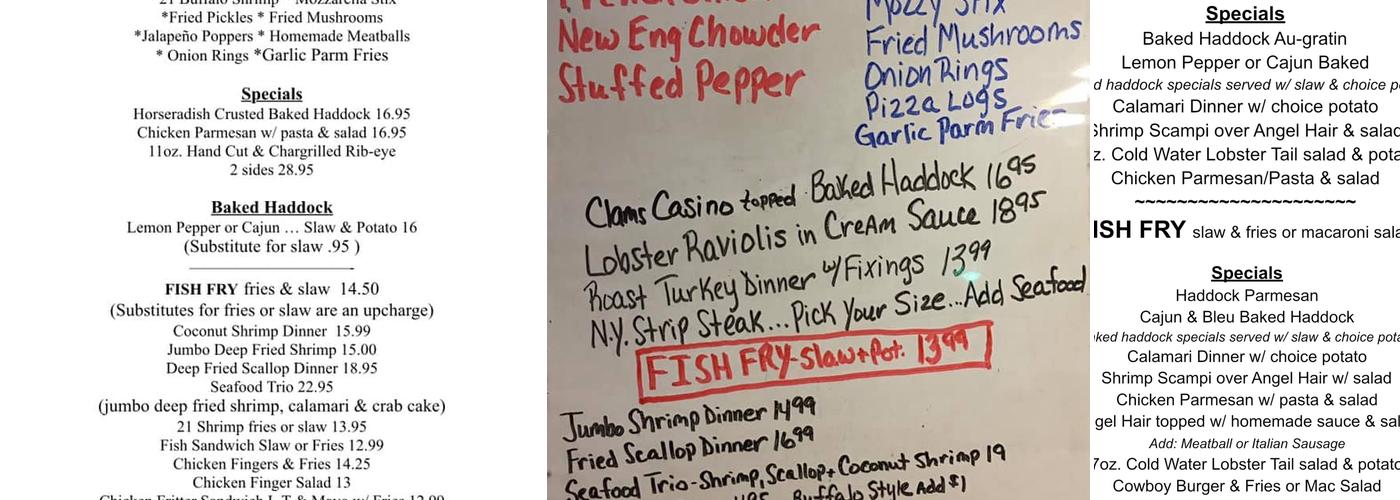 21 Buffalo Shrimp * Mozzarella Stix
*Fried Pickles * Fried Mushrooms
*Jalapeño Poppers * Homemade Meatballs
* Onion Rings *Garlic Parm Fries
Specials
Horseradish Crusted Baked Haddock 16.95
Chicken Parmesan w/ pasta & salad 16.95
11oz. Hand Cut & Chargrilled Rib-eye
2 sides 28.95
Baked Haddock
Lemon Pepper or Cajun … Slaw & Potato 16
(Substitute for slaw .95 )
FISH FRY fries & slaw 14.50
(Substitutes for fries or slaw are an upcharge)
Coconut Shrimp Dinner 15.99
Jumbo Deep Fried Shrimp 15.00
Deep Fried Scallop Dinner 18.95
Seafood Trio 22.95
(jumbo deep fried shrimp, calamari & crab cake)
21 Shrimp fries or slaw 13.95
Fish Sandwich Slaw or Fries 12.99
Chicken Fingers & Fries 14.25
Chicken Finger Salad 13
Chicken Fritter Sandwich L,T & Mayo w/ Fries 12.99
New Eng Chowder
Stuffed Pepper
Mozzy Stix
Fried Mushrooms
Onion Rings
Pizza Logs
Garlic Parm Fries
Clams Casino topped Baked Haddock 16.95
Lobster Raviolis in Cream Sauce 18.95
Roast Turkey Dinner w/ Fixings 13.99
N.Y. Strip Steak... Pick Your Size... Add Seafood
FISH FRY-Slaw + Pot. 13.99
Jumbo Shrimp Dinner 14.99
Fried Scallop Dinner 16.99
Seafood Trio-Shrimp, Scallop + Coconut Shrimp 19
Buffalo Style Add $1
Specials
Baked Haddock Au-gratin
Lemon Pepper or Cajun Baked
d haddock specials served w/ slaw & choice po
Calamari Dinner w/ choice potato
Shrimp Scampi over Angel Hair & salad
z. Cold Water Lobster Tail salad & pota
Chicken Parmesan/Pasta & salad
~~~~~~~~~~~~~~~~~~~~~
ISH FRY slaw & fries or macaroni sala
Specials
Haddock Parmesan
Cajun & Bleu Baked Haddock
ked haddock specials served w/ slaw & choice pota
Calamari Dinner w/ choice potato
Shrimp Scampi over Angel Hair w/ salad
Chicken Parmesan w/ pasta & salad
gel Hair topped w/ homemade sauce & sal
Add: Meatball or Italian Sausage
7oz. Cold Water Lobster Tail salad & potato
Cowboy Burger & Fries or Mac Salad